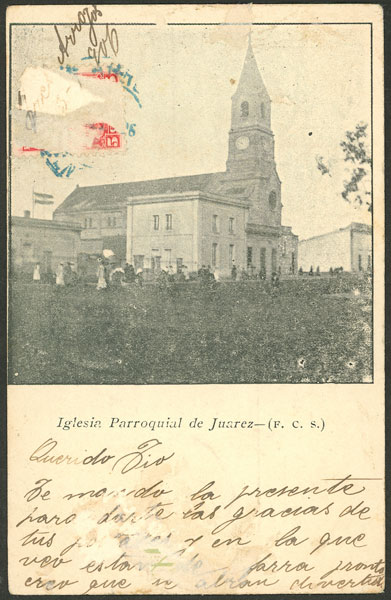 Arroyos
906
Iglesia Parroquial de Juarez—(F. C. S.)
Querido Tio
Te mando la presente
para darte las gracias de
tus y en la que
veo estan de parra pronto
creo que se abran divertid